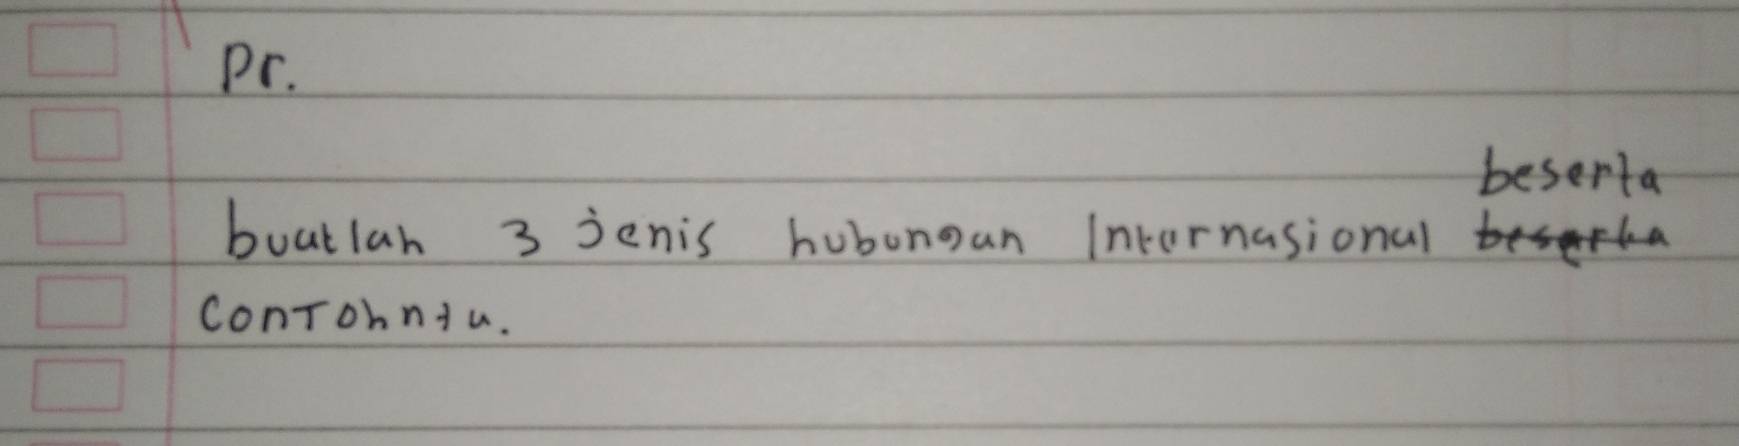 Pr.
beserta
buatlah 3 jenis hubungan Internasional beserta
contohnya.